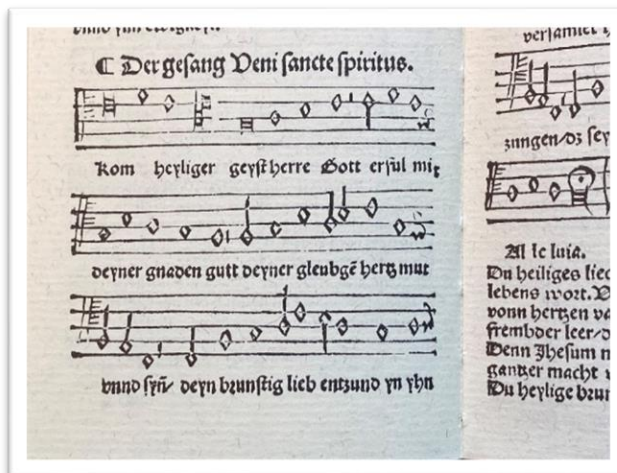 vnnd ynn ewigkeyt.
¶ Der gesang Veni sancte spiritus.
Kom heyliger geyst herre Gott erful mit
deyner gnaden gutt deyner gleubgē hertz mut
vnnd syñ/ deyn brunstig lieb entzund yn yhn
versamlet
zungen/dz sey
Al le luia.
Du heiliges liec
lebens wort.
vonn hertzen
frembder leer/
Denn Jhesum
gantzer macht
Du heylige brun